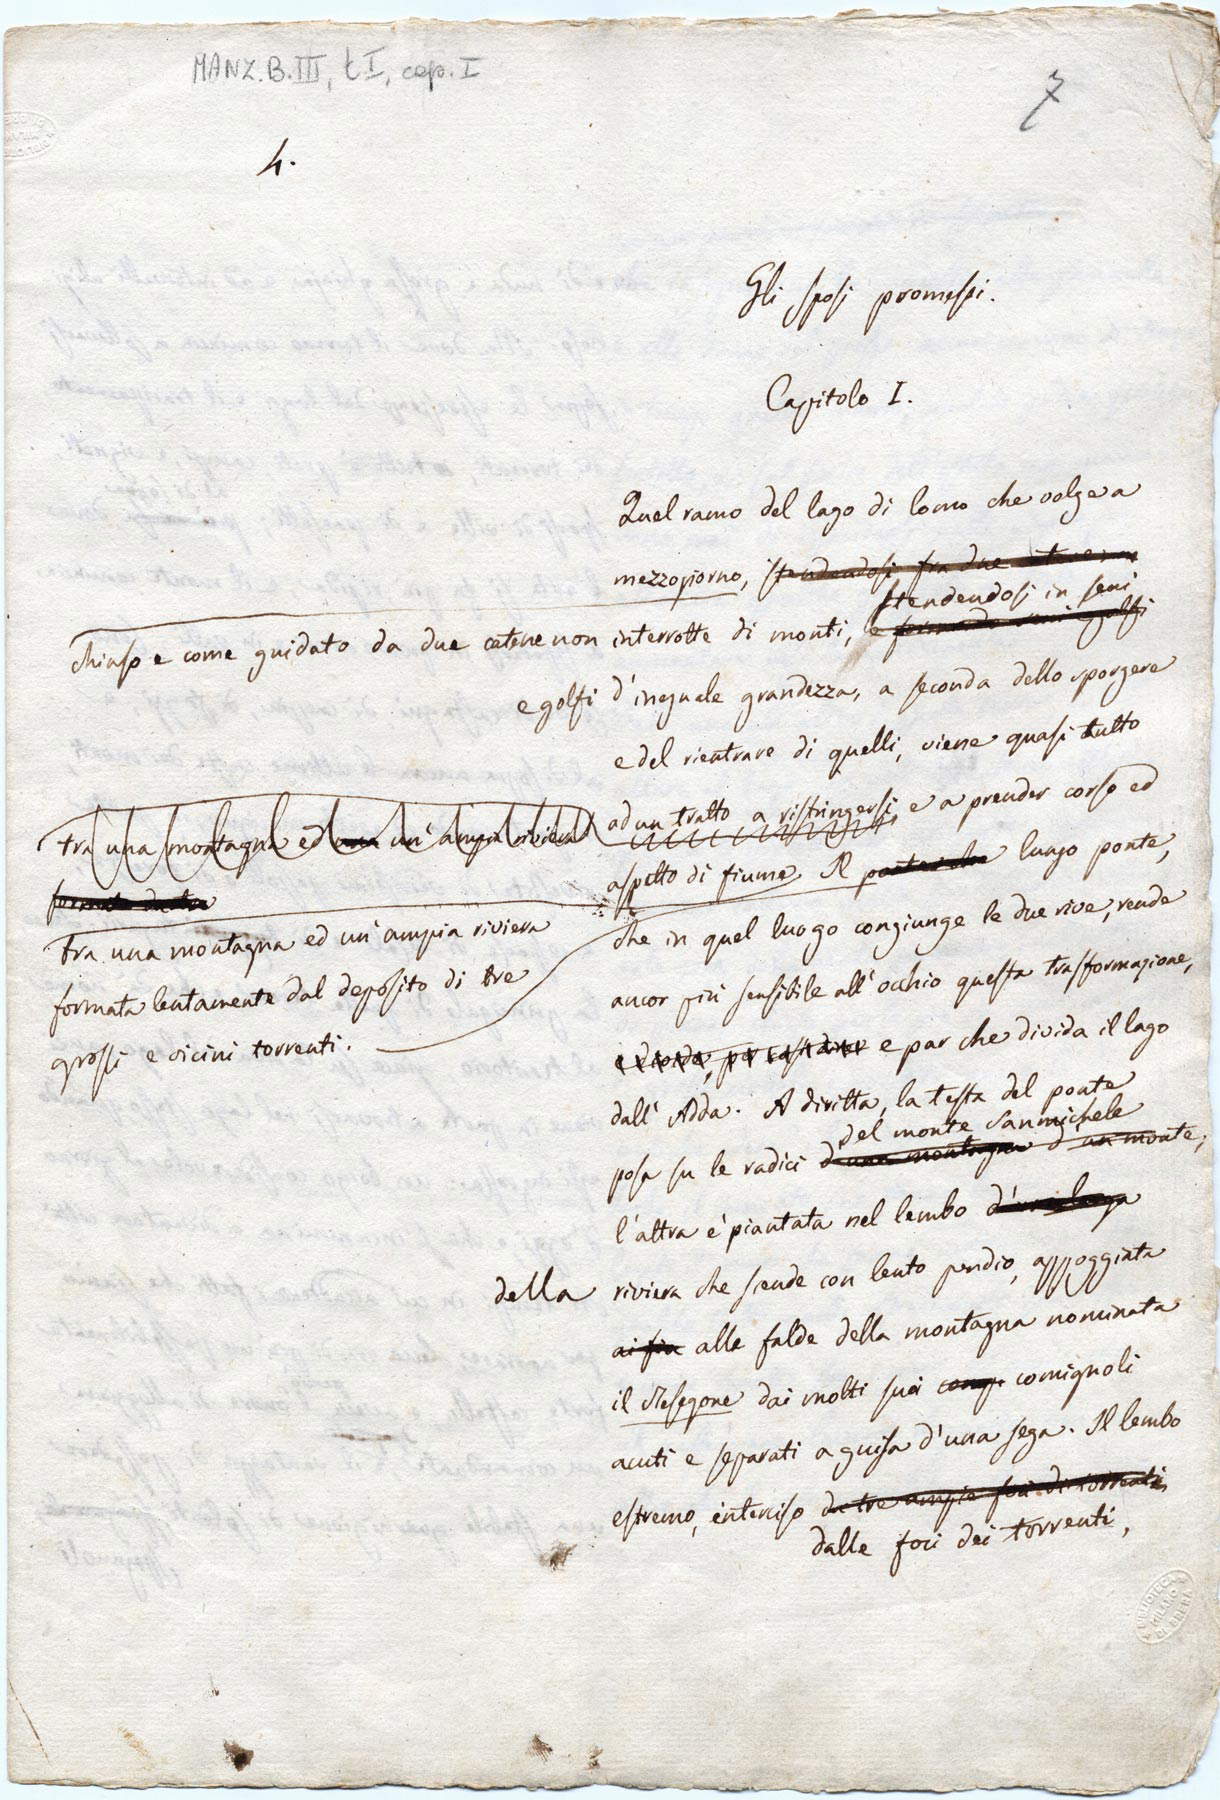 MANZ.B.III, t.I, cap. I
7
4.
Gli sposi promessi.
Capitolo I.
Quel ramo del lago di Como che volge a
mezzogiorno, stendendosi fra due catene
stendendosi in seni
chiuso e come guidato da due catene non interrotte di monti, e formando seni e golfi
e golfi d'ineguale grandezza, a seconda dello sporgere
e del rientrare di quelli, viene quasi tutto
ad un tratto a ristringersi e a prender corso ed
tra una montagna ed una un'ampia riviera
aspetto di fiume. Il ponte che lungo ponte,
formata da tre
tra una montagna ed un'ampia riviera
che in quel luogo congiunge le due rive, rende
formata lentamente dal deposito di tre
ancor più sensibile all'occhio questa trasformazione,
grossi e vicini torrenti.
e par che divida il lago
dall'Adda. A diritta, la testa del ponte
del monte Sanmichele
posa su le radici d'una montagna d'un monte;
l'altra è piantata nel lembo d'una larga
della riviera che scende con lento pendio, appoggiata
alle falde della montagna nominata
il Resegone dai molti suoi comignoli
acuti e separati a guisa d'una sega. Il lembo
estremo, interciso da tre ampie foci di torrenti
dalle foci dei torrenti,
BIBLIOTECA
MILANO
DI BRERA